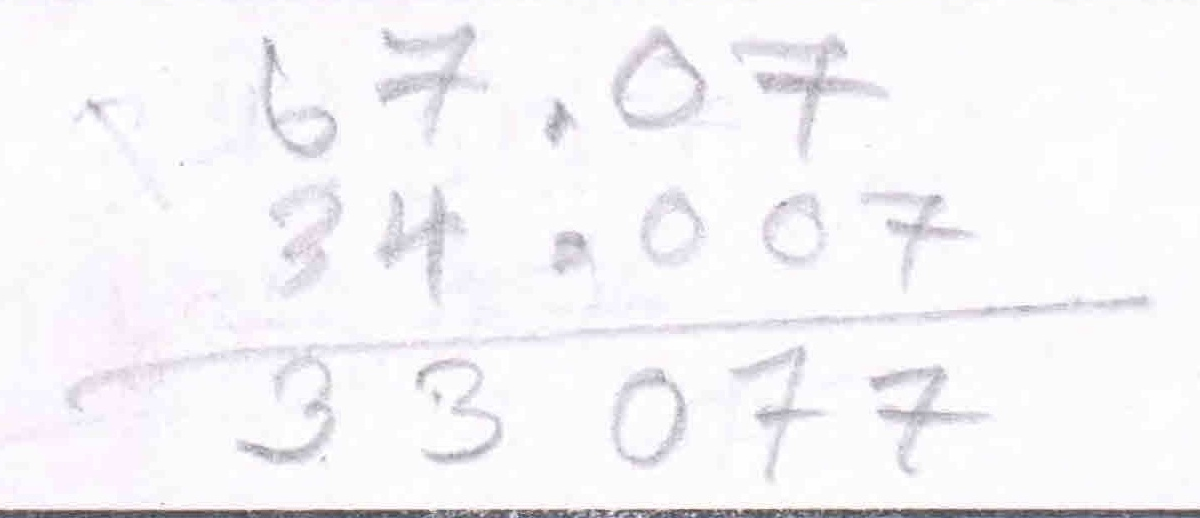 67.07
34.007
33077